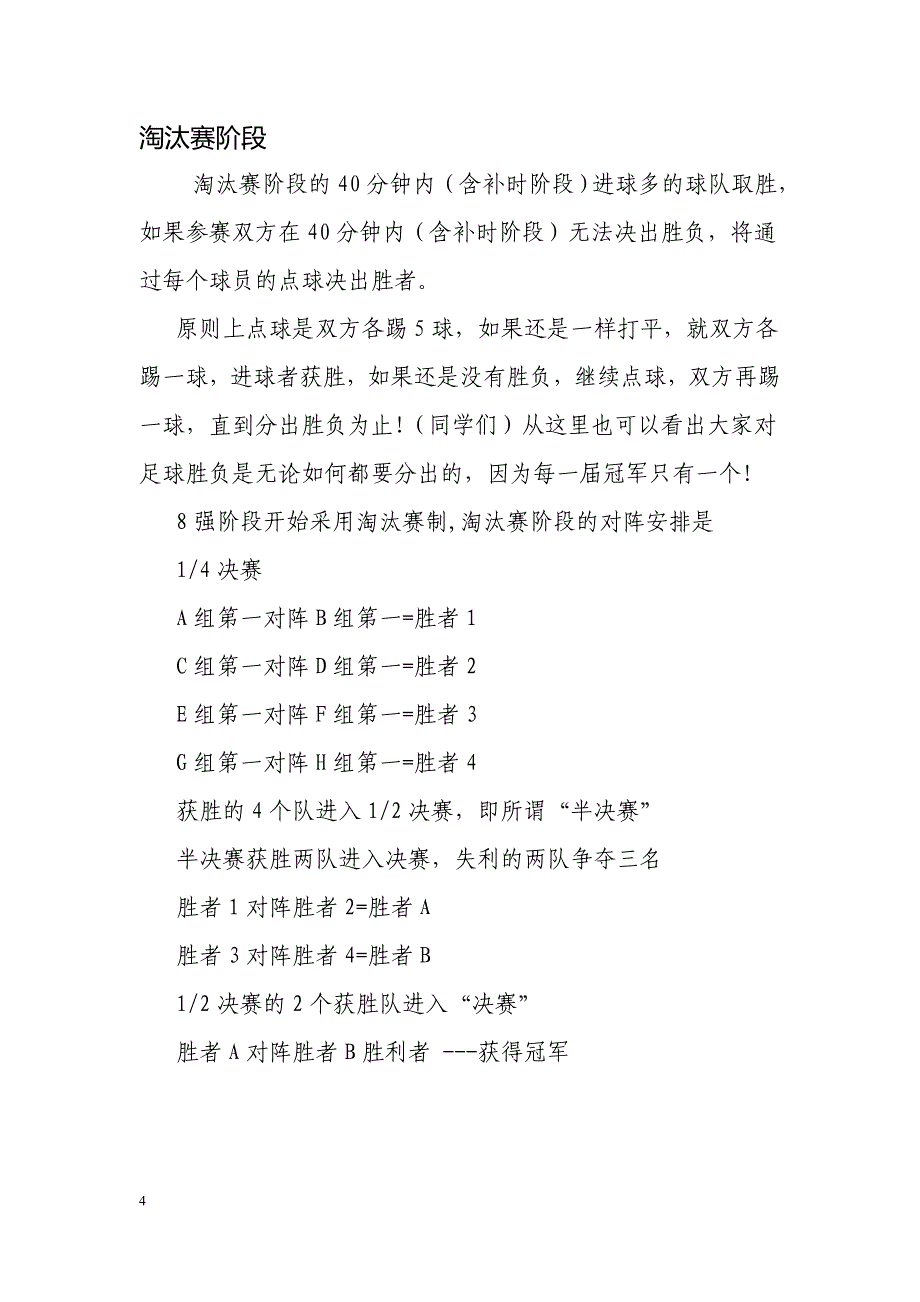 淘汰赛阶段
淘汰赛阶段的 40 分钟内（含补时阶段）进球多的球队取胜，
如果参赛双方在 40 分钟内（含补时阶段）无法决出胜负，将通
过每个球员的点球决出胜者。
原则上点球是双方各踢 5 球，如果还是一样打平，就双方各
踢一球，进球者获胜，如果还是没有胜负，继续点球，双方再踢
一球，直到分出胜负为止！（同学们）从这里也可以看出大家对
足球胜负是无论如何都要分出的，因为每一届冠军只有一个！
8 强阶段开始采用淘汰赛制,淘汰赛阶段的对阵安排是
1/4 决赛
A 组第一对阵 B 组第一=胜者 1
C 组第一对阵 D 组第一=胜者 2
E 组第一对阵 F 组第一=胜者 3
G 组第一对阵 H 组第一=胜者 4
获胜的 4 个队进入 1/2 决赛，即所谓“半决赛”
半决赛获胜两队进入决赛，失利的两队争夺三名
胜者 1 对阵胜者 2=胜者 A
胜者 3 对阵胜者 4=胜者 B
1/2 决赛的 2 个获胜队进入“决赛”
胜者 A 对阵胜者 B 胜利者 ---获得冠军
4